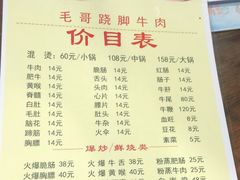 毛哥跷脚牛肉
价目表
混 烫: 60元/小锅 108元/中锅 158元/大锅
牛肉 14元 脆肠 14元 红肠 14元
肥牛 14元 舌头 14元 肠子 14元
黄喉 14元 心头 14元 牛肝 14元
脊髓 14元 心片 14元 牛尾 80元
白肚 14元 腰片 14元 牛鞭 120元
毛肚 14元 肚梁 14元 血旺 8元
脑花 14元 牛杂 14元 豆花 8元
蹄筋 14元 火伞 14元 素菜 5元
胸膘 14元
爆炒/鲜烧类
火爆脆肠 38元 火爆牛舌 38元 粉蒸肥肠 25元
火爆腰花 40元 火爆黄喉 40元 粉蒸牛肉 25元